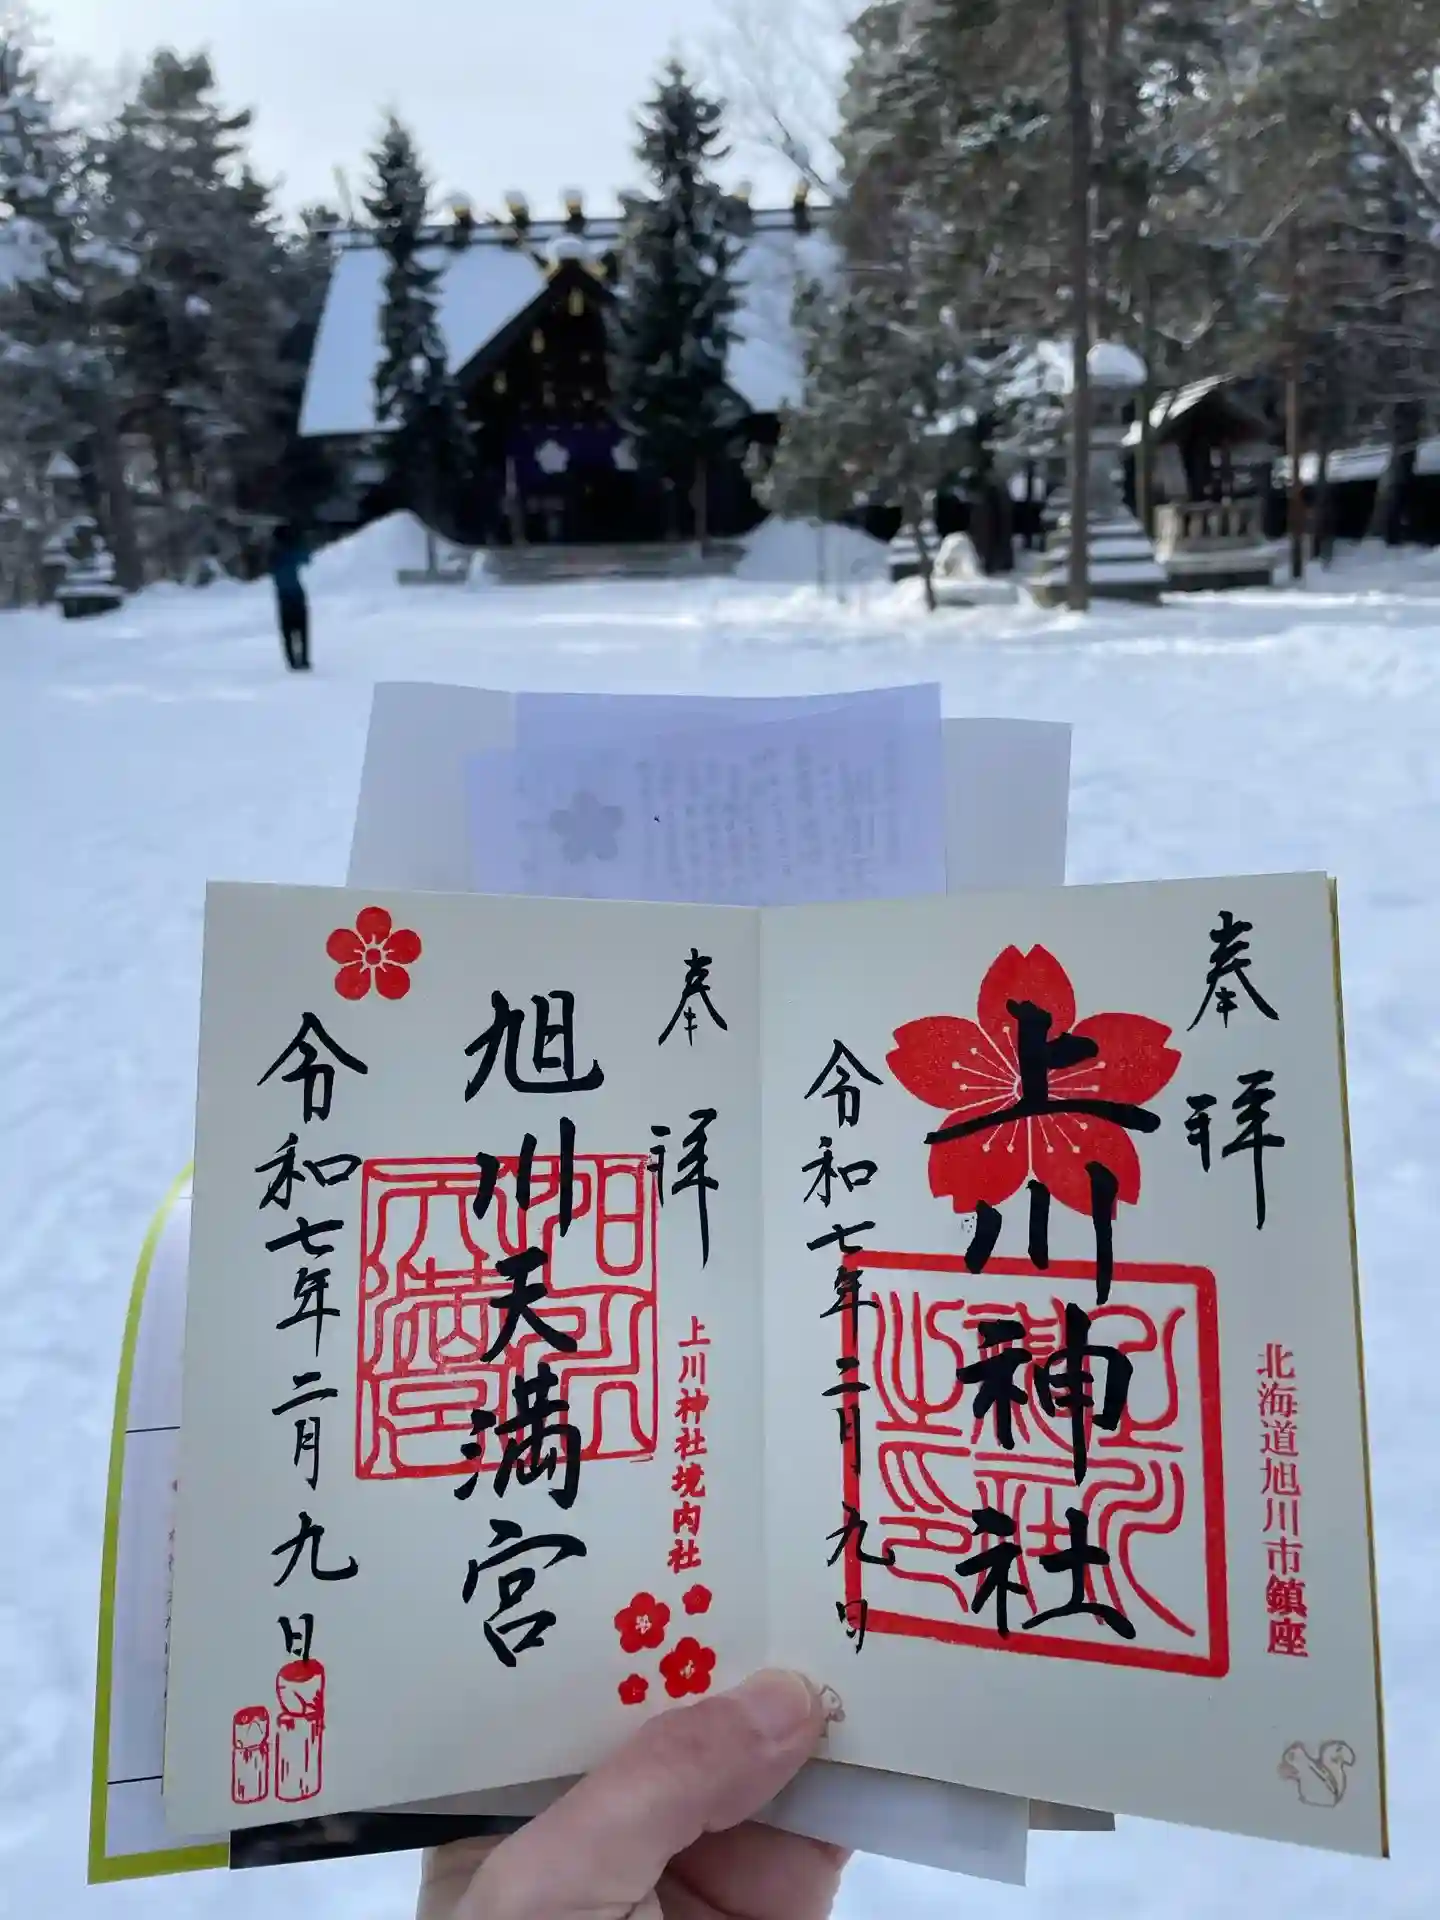 奉拝
上川神社
令和七年二月九日
北海道旭川市鎮座
奉拝
旭川天満宮
令和七年二月九日
上川神社境内社